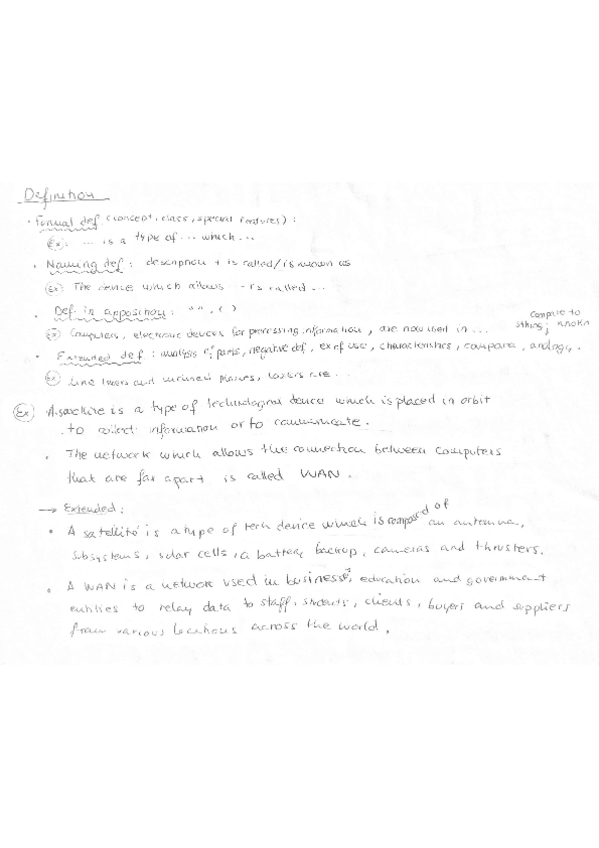 Definition
· Formal def (concept, class, special features) :
Ex: ... is a type of ... which ...
· Naming def : description + is called/is known as
Ex: The device which allows - is called ...
· Def in apposition : " " , ( )
Ex: Computers, electronic devices for processing information, are now used in ...
compare to
sthing; known
· Extended def : analysis of parts, negative def, ex of use, characteristics, compare, analogy.
Ex: lasers and , lasers are ...
Ex: A satellite is a type of technological device which is placed in orbit
to collect information or to communicate.
· The network which allows the connection between computers
that are far apart is called WAN.
→ Extended :
· A satellite is a type of tech device which is composed of an antenna,
subsystems, solar cells, a battery backup, cameras and thrusters.
· A WAN is a network used in business, education and government
entities to relay data to staff, students, clients, buyers and suppliers
from various locations across the world.